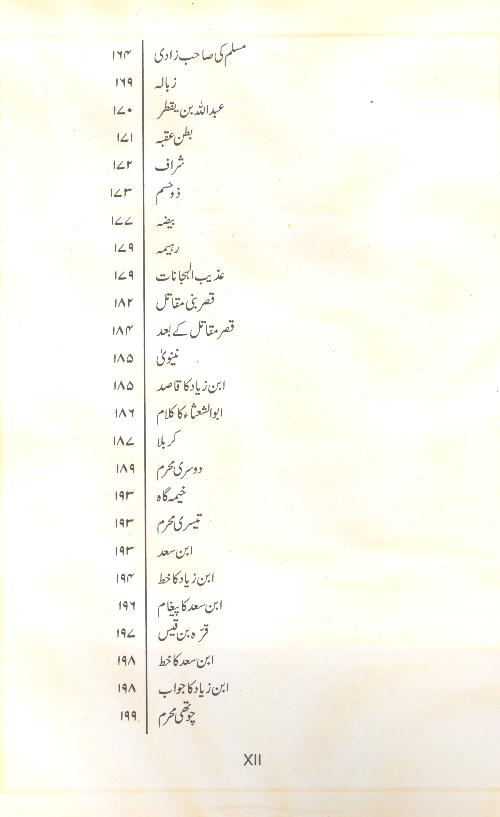 مسلم کی صاحب زادی ۱۶۴
زبالہ ۱۶۹
عبداللہ بن یقطر ۱۷۰
بطن عقبہ ۱۷۱
شراف ۱۷۲
ذو حسم ۱۷۳
بیضہ ۱۷۷
رہیمہ ۱۷۹
عذیب الہجانات ۱۷۹
قصر بنی مقاتل ۱۸۲
قصر مقاتل کے بعد ۱۸۴
نینویٰ ۱۸۵
ابن زیاد کا قاصد ۱۸۵
ابوالشعثاء کا کلام ۱۸۶
کربلا ۱۸۷
دوسری محرم ۱۸۹
خیمہ گاہ ۱۹۳
تیسری محرم ۱۹۳
ابن سعد ۱۹۳
ابن زیاد کا خط ۱۹۴
ابن سعد کا پیغام ۱۹۶
قرّہ بن قیس ۱۹۷
ابن سعد کا خط ۱۹۸
ابن زیاد کا جواب ۱۹۸
چوتھی محرم ۱۹۹
XII